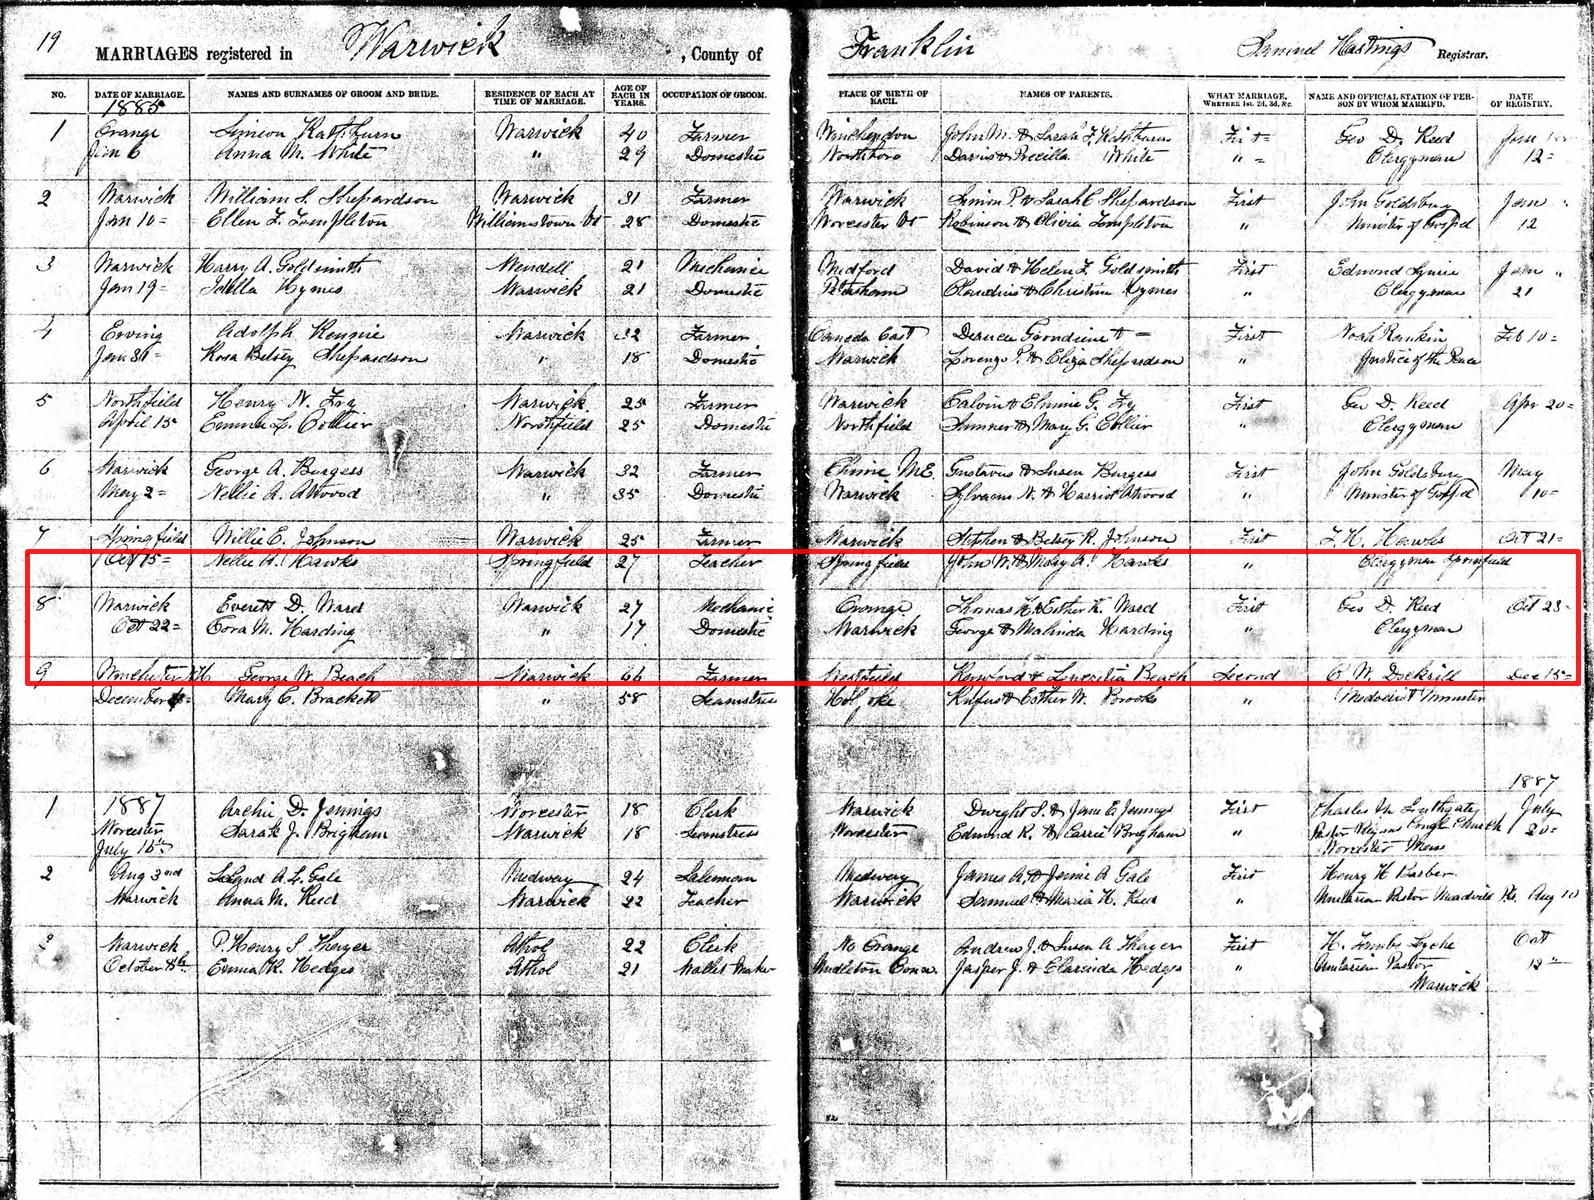 19 MARRIAGES registered in Warwick, County of Franklin Samuel Hastings Registrar.
NO. DATE OF MARRIAGE. NAMES AND SURNAMES OF GROOM AND BRIDE. RESIDENCE OF EACH AT TIME OF MARRIAGE. AGE OF EACH IN YEARS. OCCUPATION OF GROOM. PLACE OF BIRTH OF EACH. NAMES OF PARENTS. WHAT MARRIAGE, WHETHER 1st, 2d, 3d, &c. NAME AND OFFICIAL STATION OF PERSON BY WHOM MARRIED. DATE OF REGISTRY.
1885
1 Orange Simeon Rathburn Warwick 40 Farmer Winchendon John M. & Sarah F. Rathburn First Geo D. Reed Jan
Jan 6 Anna M. White " 29 Domestic Northboro Darius & Precilla White " Clergyman 12
2 Warwick William S. Shepardson Warwick 31 Farmer Warwick Simon P. & Sarah E Shepardson First John Goldsbury Jan "
Jan 10 Ellen F. Templeton Williamstown Vt 28 Domestic Worcester Vt Robinson & Olivia Templeton " Minister of Gospel 12
3 Warwick Harry A. Goldsmith Wendell 21 Mechanic Medford David & Helen F. Goldsmith First Edmond Squire Jan "
Jan 19 Idella Hymes Warwick 21 Domestic Petersham Claudius & Christine Hymes " Clergyman 21
4 Erving Adolph Rennie Warwick 32 Farmer Canada East First Noah Rankin Feb 10
Jan 31 Rosa Betsey Shepardson " 18 Domestic Warwick Lorenzo P. & Eliza Shepardson " Justice of the Peace
5 Northfield Henry N. Fry Warwick 25 Farmer Warwick Calvin & Elmina G. Fry First Geo D. Reed Apr 20
April 15 Emma L. Collier Northfield 25 Domestic Northfield Sumner & Mary G. Collier " Clergyman
6 Warwick George A. Burgess Warwick 32 Farmer China ME. Gustavus & Susan Burgess First John Goldsbury May
May 2 Nellie A. Atwood " 35 Domestic Warwick Sylvanus N. & Harriot Atwood " Minister of Gospel 10
7 Springfield Willie E. Johnson Warwick 25 Farmer Warwick Stephen & Betsey R. Johnson First F. H. Hawks Oct 21
Oct 15 Nellie A. Hawks Springfield 27 Teacher Springfield John W. & Mary A. Hawks " Clergyman Springfield
8 Warwick Everett D. Ward Warwick 27 Mechanic Orange Thomas H. & Esther K. Ward First Geo D. Reed Oct 23
Oct 22 Cora M. Harding " 17 Domestic Warwick George & Malinda Harding " Clergyman
9 Winchester NH George W. Beach Warwick 66 Farmer Westfield & Lucretia Beach Second O. W. Dec 15
December Mary C. Brackett " 58 Seamstress Holyoke Rufus & Esther W. Brooks " Methodist Minister
1887
1 1887 Archie D. Jennings Worcester 18 Clerk Warwick Dwight S. & Jane E. Jennings First Charles July
Worcester Sarah J. Brigham Warwick 18 Seamstress Worcester Edmund R. & Carrie Brigham " Pastor Pilgrim Congl Church 20
July Worcester Mass
2 Aug 3rd Leland A. L. Gale Medway 24 Salesman Medway James A. & Jennie A Gale First Henry H Barber
Warwick Anna M. Reed Warwick 22 Teacher Warwick Samuel & Maria H. Reed " Unitarian Pastor Meadville Pa. Aug 10
3 Warwick P. Henry S. Thayer Athol 22 Clerk No Orange Andrew J. & Susan A Thayer First H. Oct
October Emma R. Hedges Athol 21 Wallet Maker Middleton Conn. Jasper J. & Clarinda Hedges " Unitarian Pastor 12
Warwick